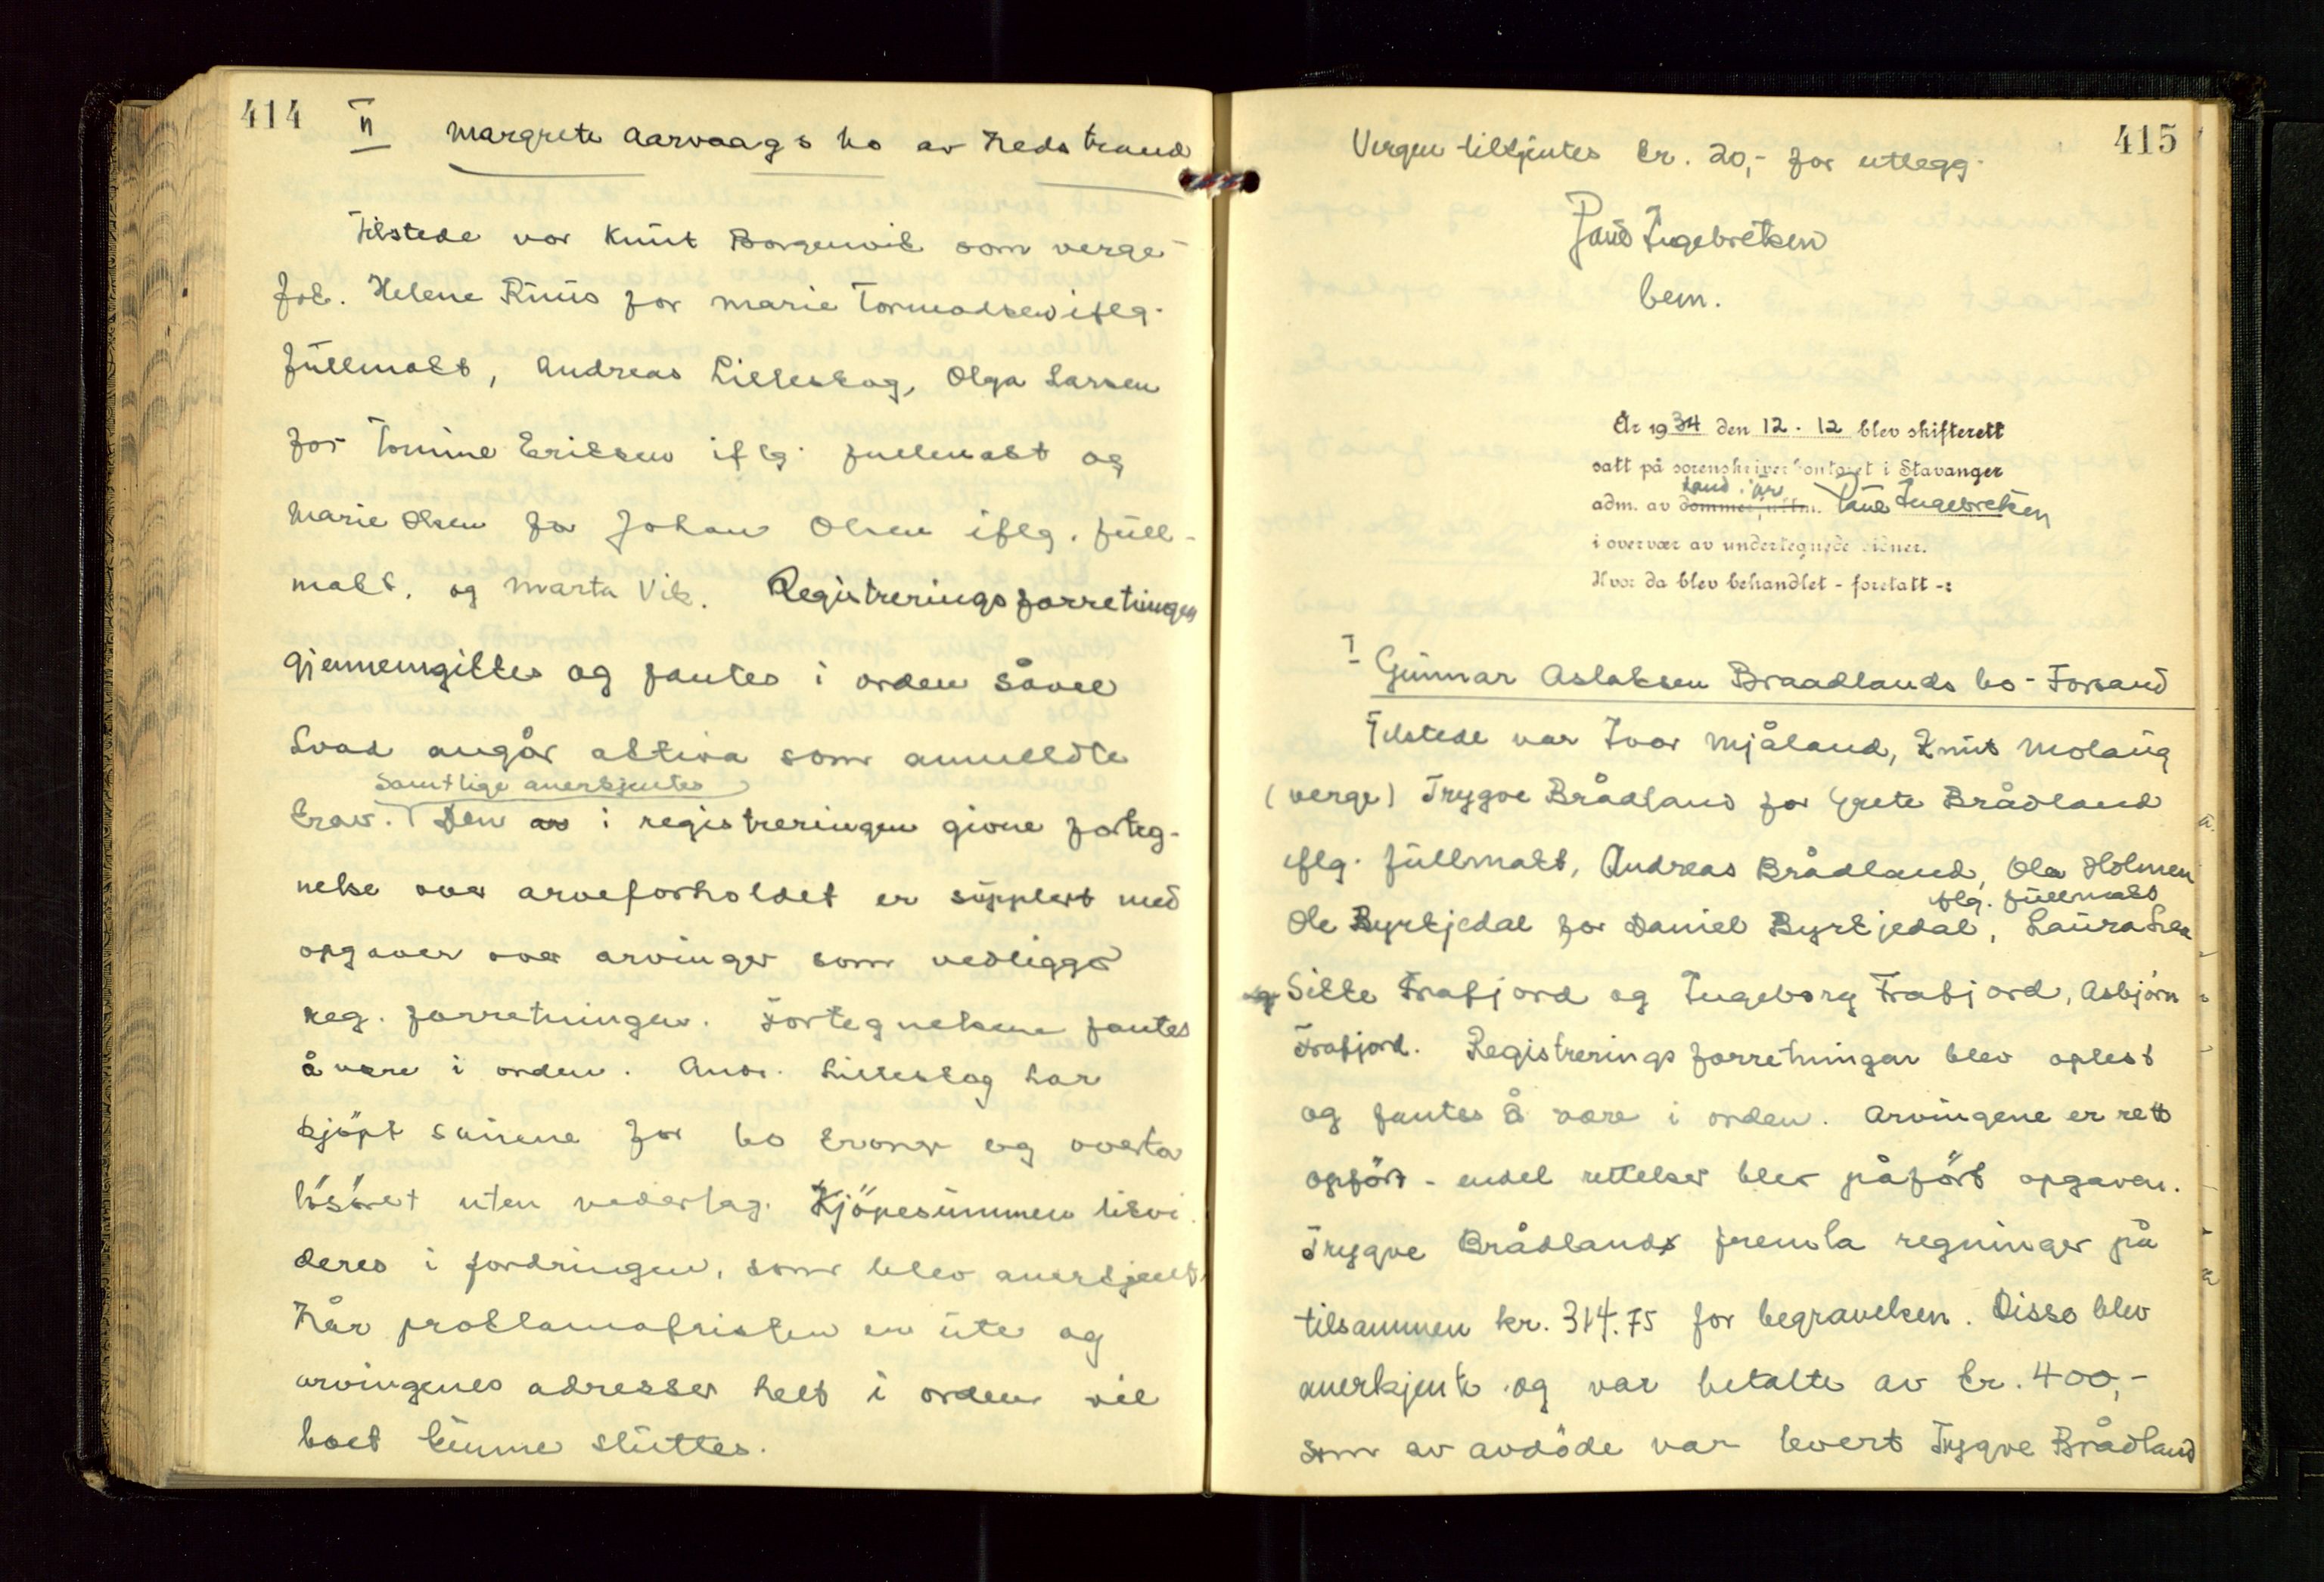 414
II Margrete Aarvaags bo av Nedstrand
Tilstede var Knut Borgenvik som verge
frk. Helene Ruus for Marie Tormodsen iflg.
fullmakt, Andreas Lilleskog, Olga Larsen
for Tomine Eriksen iflg. fullmakt og
Marie Olsen for Johan Olsen iflg. full-
makt, og Marta Vik. Registreringsforretningen
gjennemgikkes og fantes i orden såvel
hvad angår aktiva som anmeldte
samtlige anerkjentes
krav. Den av i registreringen givne forteg-
nelse over arveforholdet er supplert med
opgaver over arvinger som vedligger
reg. forretningen. Fortegnelsene fantes
å være i orden. Andr. Lilleskog har
kjöpt sauene for 60 kroner og overta
lösöret uten vederlag. Kjöpesummen likvi
deres i fordringen, som blev anerkjent.
Når proklamafristen er ute og
arvingenes adresser helt i orden vil
boet kunne sluttes.
415
Vergen tilkjentes kr. 20,- for utlegg.
Paul Ingebretsen
bem.
År 1934 den 12 - 12 blev skifterett
satt på sorenskriverkontoret i Stavanger
adm. av dommerfullm. Paul Ingebretsen
i overvær av undertegnede vidner.
Hvor da blev behandlet - foretatt -:
I Gunnar Aslaksen Braadlands bo - Forsand
Tilstede var Ivar Mjåland, Knut Molaug
(verge) Trygve Brådland for Grete Brådland
iflg. fullmakt, Andreas Brådland, Ola Holmen
iflg. fullmakt
Ole Byrkjedal for Daniel Byrkjedal, Laura Lea
og Sille Frafjord og Ingeborg Frafjord, Asbjörn
Frafjord. Registreringsforretningen blev oplest
og fantes å være i orden. Arvingene er rett
opfört - endel rettelser blev påfört opgaven.
Trygve Brådland fremla regninger på
tilsammen kr. 314.75 for begravelsen. Disse blev
anerkjent og var betalte av kr. 400,-
som av avdöde var levert Trygve Brådland